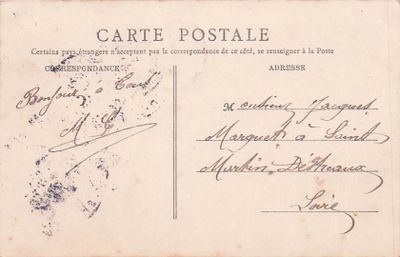 CARTE POSTALE
Certains pays étrangers n'acceptant pas la correspondance de ce côté, se renseigner à la Poste
CORRESPONDANCE
ADRESSE
Bonjour à tous
M
Monsieur Jacques
Marquet à Saint
Martin
Loire